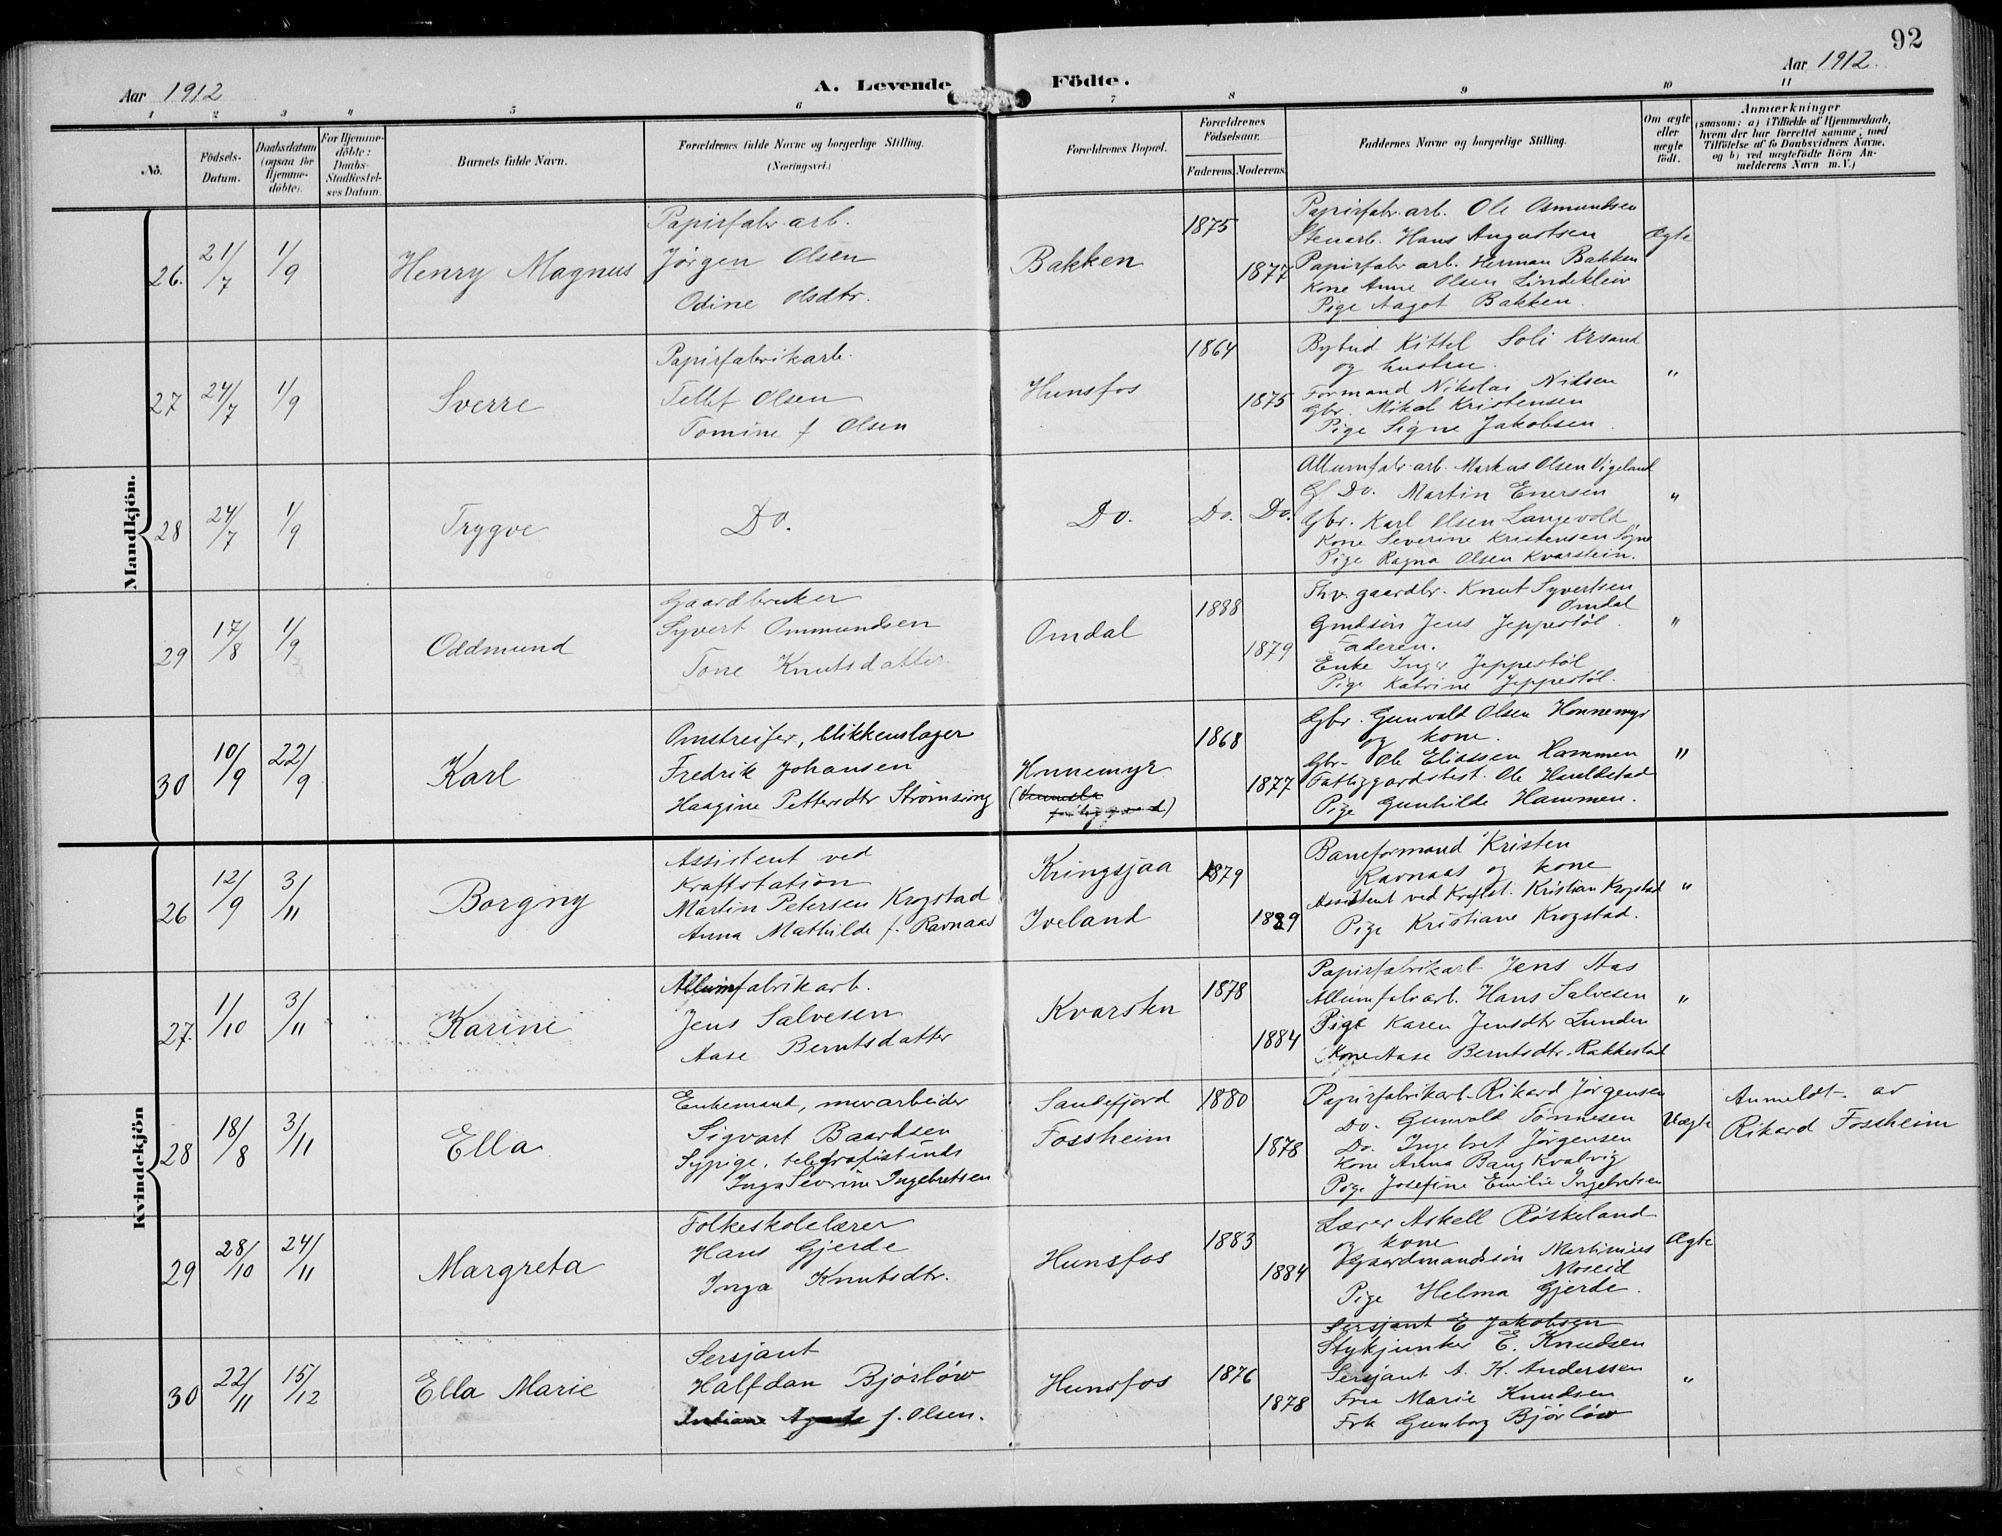 92
Aar 1912
A. Levende Födte.
Aar 1912.
1 2 3 4 5 6 7 8 9 10 11
No.
Födsels-Datum.
Daabsdatum (ogsaa for Hjemmedöbte).
For Hjemmedöbte: Daabs-Stadfestelses Datum.
Barnets fulde Navn.
Forældrenes fulde Navne og borgerlige Stilling.
(Næringsvei.)
Forældrenes Bopæl.
Forældrenes Födselsaar.
Faderens. Moderens.
Faddernes Navne og borgerlige Stilling.
Om ægte eller uægte födt.
Anmærkninger
(saasom: a) i Tilfælde af Hjemmedaab,
hvem der har forrettet samme, med
Tilföielse af to Daabsvidners Navne,
og b) ved uægtefödte Börn An-
melderens Navn m.V.)
Mandkjön.
26. 21/7 1/9 Henry Magnus
Papirfabr. arb.
Jørgen Olsen
Odine Olsdtr.
Bakken
1875
1877
Papirfabr. arb. Ole Osmundsen
Stenarb. Hans Augustsen
Papirfabr arb. Herman Bakken
Kone Anne Olsen Lindekleiv
Pige Aagot Bakken.
Ægte
27 24/7 1/9 Sverre
Papirfabrikarb.
Tellef Olsen
Tomine f Olsen
Hunsfos
1864
1875
Bybud Kittel Soli Krsand
og hustru.
Formand Nikolai Nilsen
Gbr. Mikal Kristensen
Pige Signe Jakobsen.
"
28 24/7 1/9 Trygve
Do.
Do.
Do. Do.
Allumfabr. arb. Markus Olsen Vigeland
Do. Martin Enersen
Gbr. Karl Olsen Langevold
Kone Severine Kristensen Søgne
Pige Ragna Olsen Kvarstein.
"
29 17/8 1/9 Oddmund
Gaardbruker
Syvert Ommundsen
Tone Knutsdatter.
Omdal
1888
1879
Fhv. gaardbr. Knut Syvertsen
Omdal
Grndsøn Jens Jeppestøl.
Faderen.
Enke Inger Jeppestøl
Pige Katrine Jeppestøl.
"
30 10/9 22/9 Karl
Omstreifer, blikkenslager
Fredrik Johansen
Haagine Pettersdtr Strømsing
Honnemyr
(Vennesla
fattiggaard)
1868
1877
Gbr. Gunvald Olsen Honnemyr
og kone.
Gbr. Ole Eliassen Hammen
Fattiggardsbest. Ole
Pige Gunhilde Hammen.
"
Kvindekjön
26 12/9 3/11 Borgny
Assistent ved
Kraftstation
Martin Petersen Krogstad
Anna Mathilde f. Ravnaas
Kringsjaa
Iveland
1879
1889
Baneformand Kristen
Ravnaas og kone
Assistent ved Kraftst. Kristian Krogstad
Pige Kristiane Krogstad.
"
27. 1/10 3/11 Karine
Allumfabrikarb.
Jens Salvesen
Aase Berntsdatter
Kvarsten
1878
1884
Papirfabrikarb Jens Aas
Allumfabr arb. Hans Salvesen
Pige Karen Jensdtr Lunden
Kone Aase Berntsdtr. Rakkestad
"
28 18/8 3/11 Ella
Enkemand, murarbeider
Sigvart Baardsen
Sypige, telegrafistinde
Inga Severine Ingebretsen
Sandefjord
Fossheim
1880
1878
Papirfabrikarb. Rikard Jørgensen
Do. Gunvald Tønnesen
Do. Ingebret Jørgensen
Kone Anna Bang Kvalvig
Pige Josefine Emilie Ingebretsen
Uægte
Anmeldt av
Rikard Fossheim
29 28/10 24/11 Margreta
Folkeskolelærer
Hans Gjerde
Inga Knutsdtr.
Hunsfos
1883
1884
Lærer Askell Røskeland
og kone
Gaardmandssøn Martinius
Moseid
Pige Helma Gjerde.
Ægte
30 22/11 15/12 Ella Marie
Sersjant
Halfdan Bjorløw
f. Olsen.
Hunsfos
1876
1878
Sersjant E Jakobsen
Stykjunker E. Knudsen
Sersjant A. K. Anderssen
Fru Marie Knudsen
Frk Gunborg Bjorløw
"